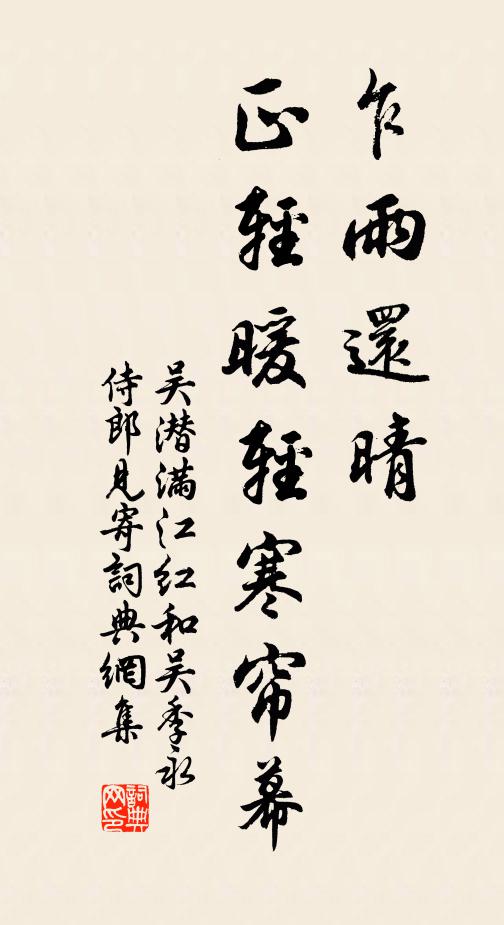 乍雨還晴
正輕暖輕寒帘幕
吴潜满江红和吴季永
侍郎見寄詞典網集
詞典
网印